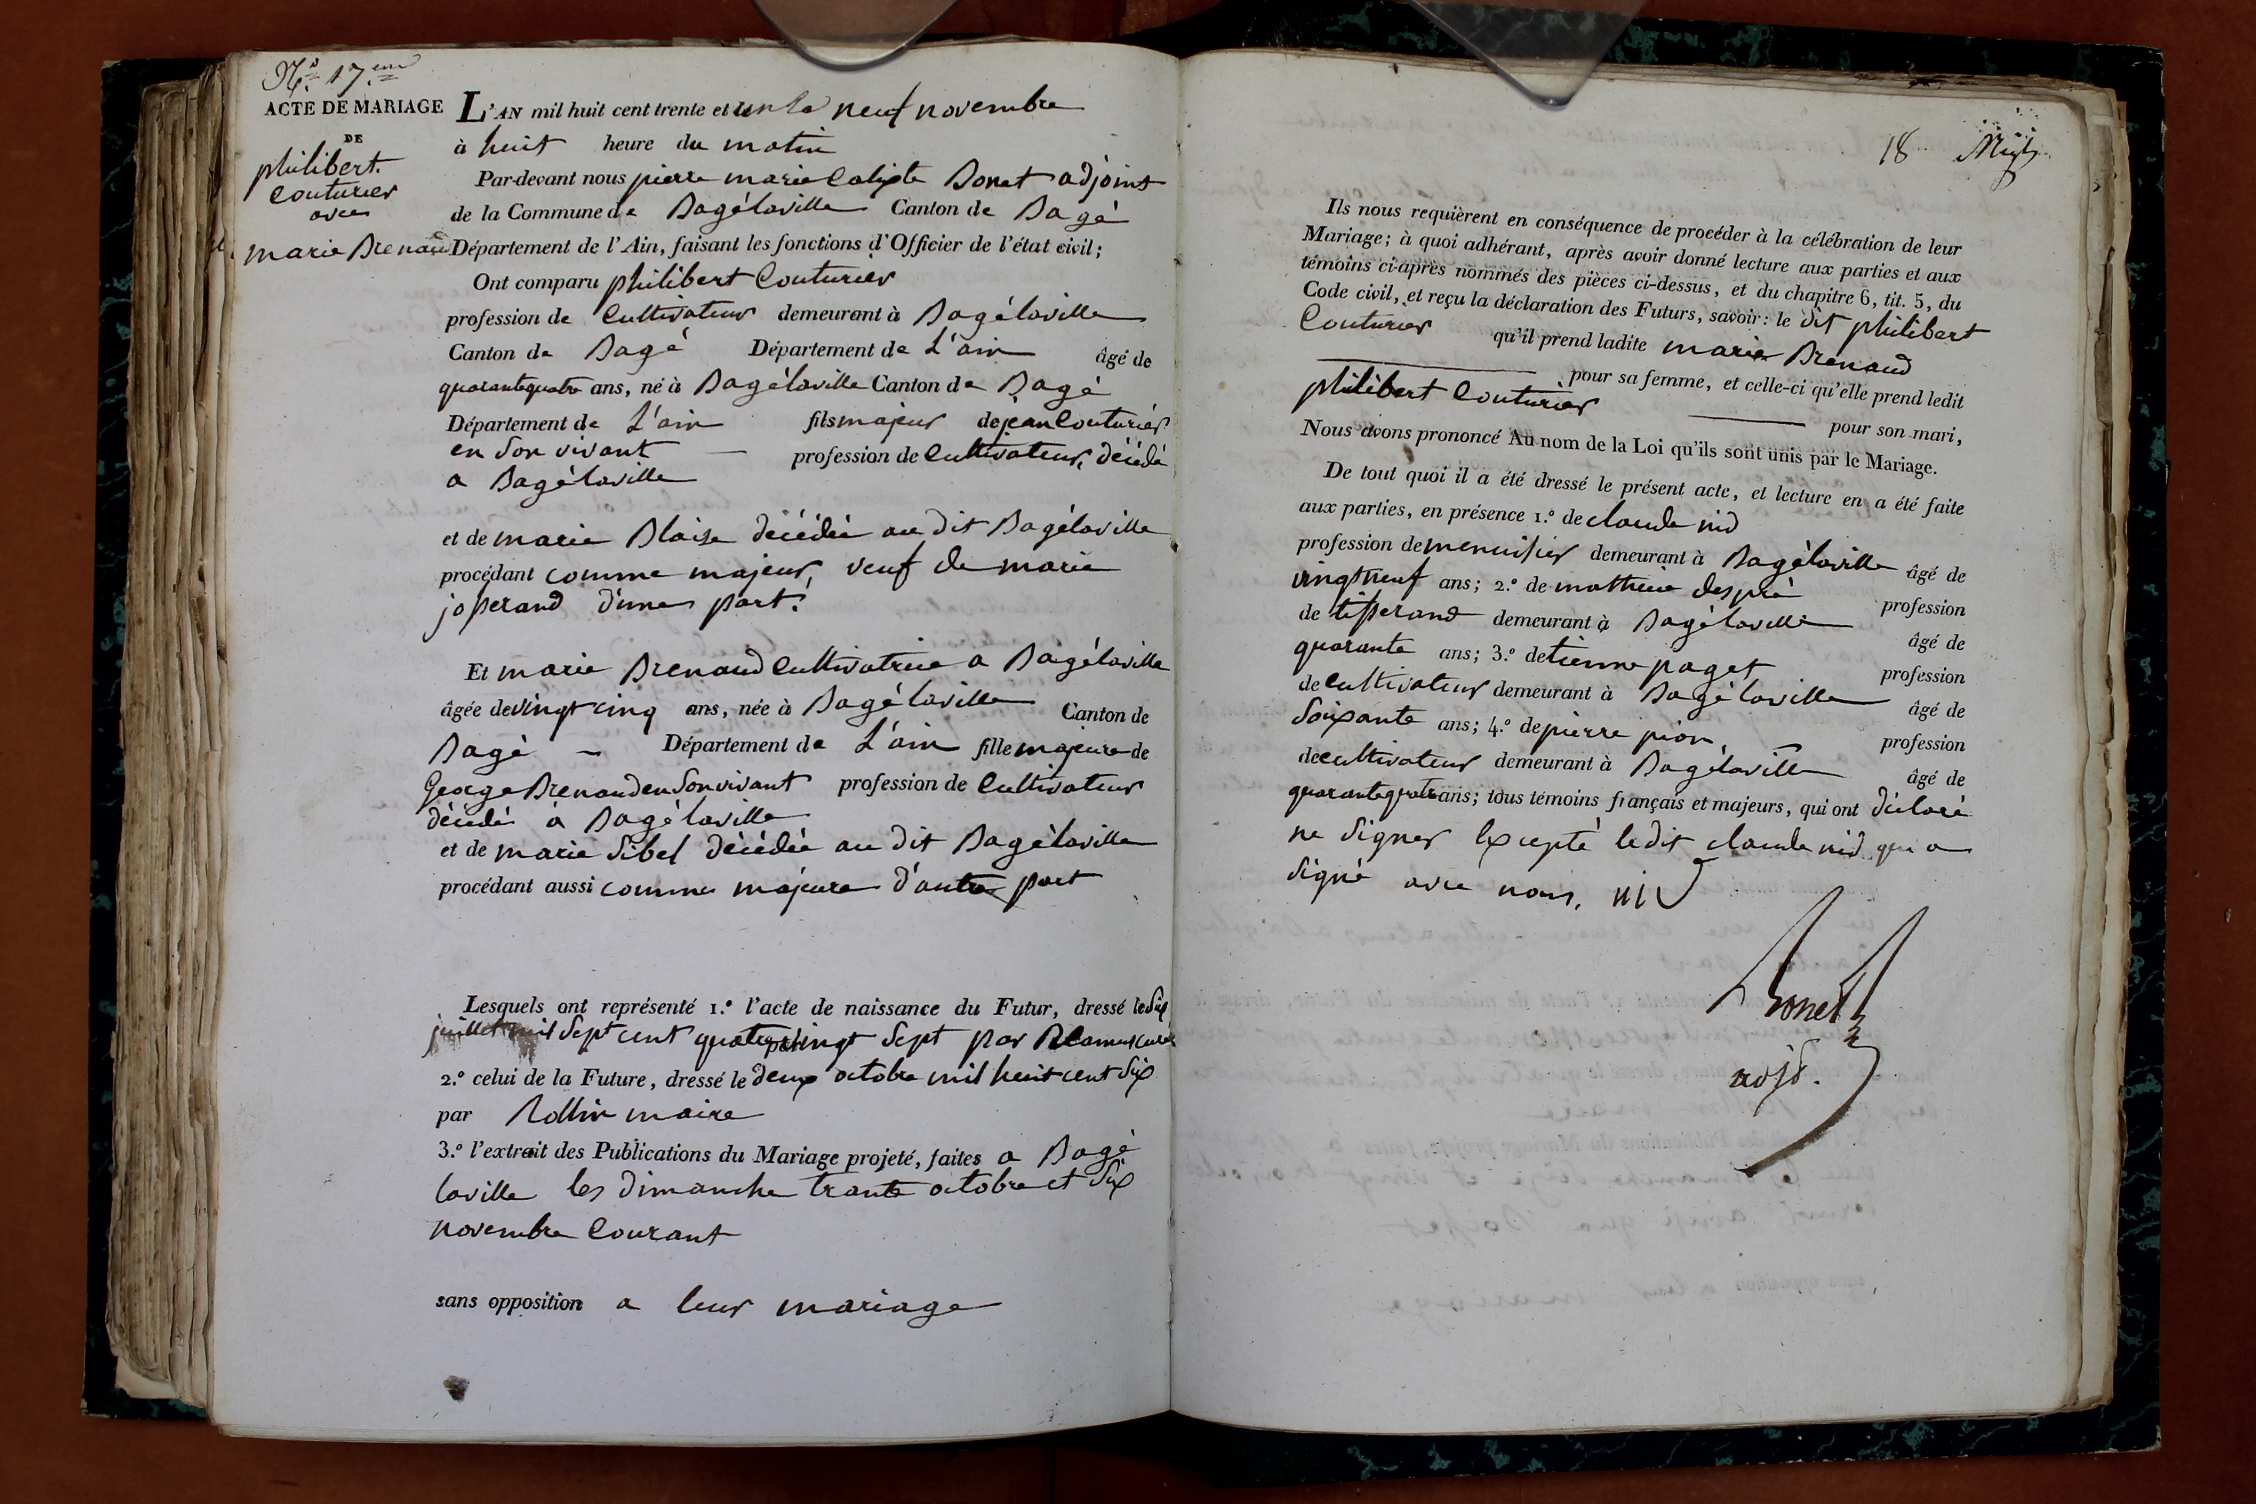 N.° 17.eme
ACTE DE MARIAGE
DE
philibert
Couturier
avec
marie Brenaud
L'AN mil huit cent trente et un le neuf novembre
à huit heure du matin
Par-devant nous pierre marie Calixte Bonet adjoint
de la Commune de Bagélaville Canton de Bagé
Département de l'Ain, faisant les fonctions d'Officier de l'état civil;
Ont comparu philibert Couturier
profession de Cultivateur demeurant à Bagélaville
Canton de Bagé Département de L'ain âgé de
quarantequatre ans, né à Bagélaville Canton de Bagé
Département de L'ain fils majeur de jean Couturier
en son vivant profession de Cultivateur, décédé
a Bagélaville
et de marie Blaise décédée au dit Bagélaville
procédant comme majeur, veuf de marie
josserand d'une part.
Et marie Brenaud Cultivatrice a Bagélaville
âgée de vingt cinq ans, née à Bagélaville Canton de
Bagé Département de L'ain fille majeure de
George Brenaud en son vivant profession de Cultivateur
décédé à Bagélaville
et de marie Sibel décédée au dit Bagélaville
procédant aussi comme majeure d'autre part
Lesquels ont représenté 1.° l'acte de naissance du Futur, dressé le six
juillet mil sept cent quatre vingt sept par
2.° celui de la Future, dressé le deux octobre mil huit cent six
par Rollin maire
3.° l'extrait des Publications du Mariage projeté, faites a Bagé
laville les dimanche trante octobre et six
novembre Courant
sans opposition a leur mariage
18
Ils nous requièrent en conséquence de procéder à la célébration de leur
Mariage; à quoi adhérant, après avoir donné lecture aux parties et aux
témoins ci-après nommés des pièces ci-dessus, et du chapitre 6, tit. 5, du
Code civil, et reçu la déclaration des Futurs, savoir: le dit philibert
Couturier qu'il prend ladite marie Brenaud
pour sa femme, et celle-ci qu'elle prend ledit
philibert Couturier pour son mari,
Nous avons prononcé Au nom de la Loi qu'ils sont unis par le Mariage.
De tout quoi il a été dressé le présent acte, et lecture en a été faite
aux parties, en présence 1.° de claude nid
profession de menuisier demeurant à Bagélaville âgé de
vingt neuf ans; 2.° de mathieu despré profession
de tisserand demeurant à Bagélaville âgé de
quarante ans; 3.° detienne paget profession
de cultivateur demeurant à Bagélaville âgé de
soixante ans; 4.° de pierre pion profession
de cultivateur demeurant à Bagélaville âgé de
quarantequatre ans; tous témoins français et majeurs, qui ont déclaré
ne signer Excepté ledit claude nid qui a
signé avec nous. nid
Bonet
adjt.